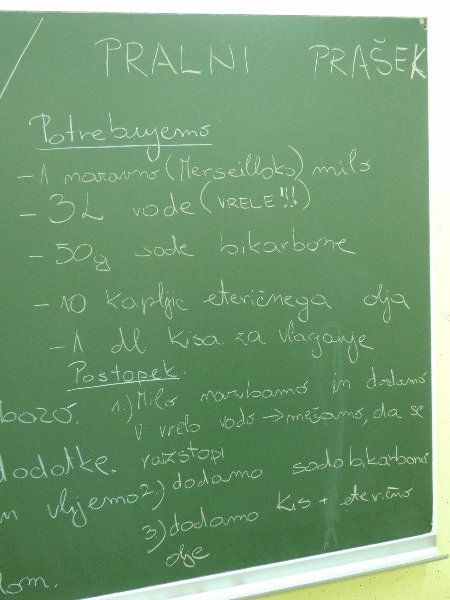 PRALNI PRAŠEK
Potrebujemo
- 1 naravno (Merseillsko) milo
- 3L vode (VRELE!!!)
- 50g sode bikarbone
- 10 kapljic eteričnega olja
- 1 dl kisa za vlaganje
Postopek
1.) Milo naribamo in dodamo
v vrelo vodo → mešamo, da se
raztopi
2) dodamo sodo bikarbono
3) dodamo kis + eterično
olje
bozo.
dodatke.
in vlijemo
lom.